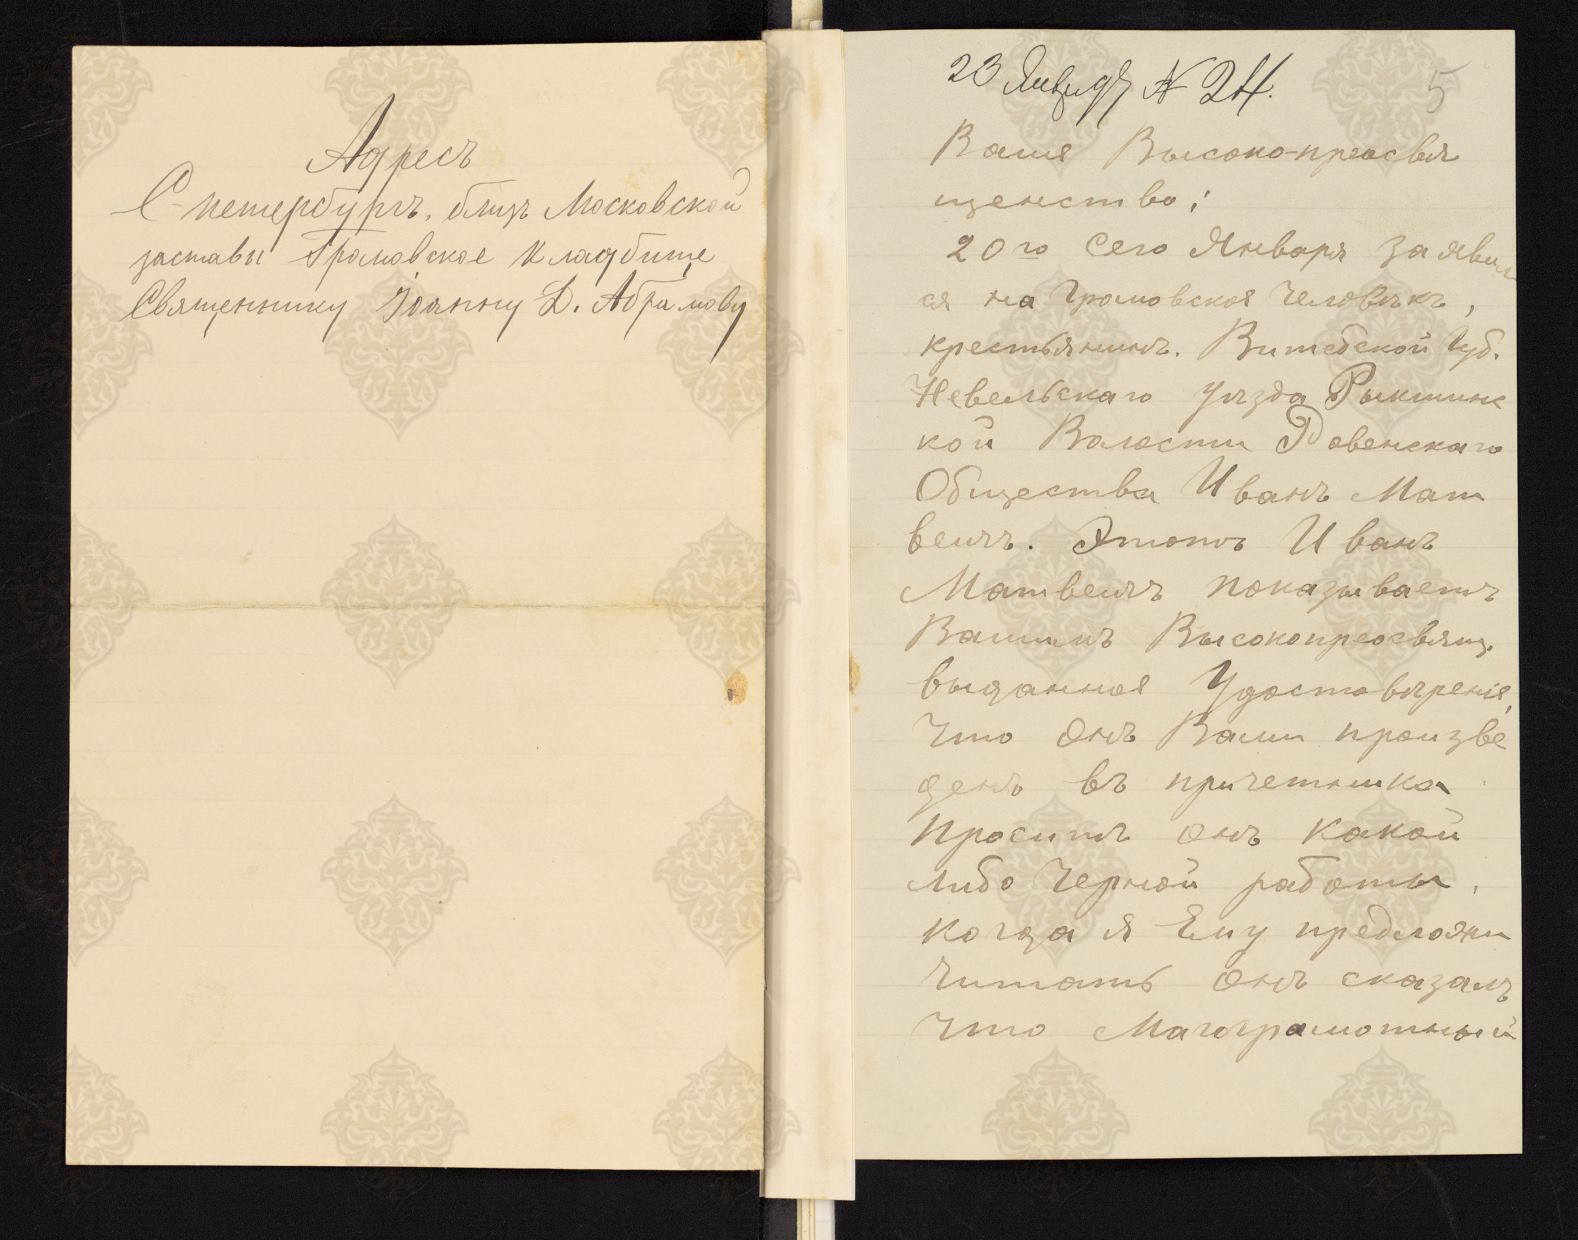 Адресъ
С-петербургъ, близъ Московской
заставы Громовское кладбище
Священнику Іоанну Д. Абрамову
23 Января № 24.
5
Ваше Высоко-преосвя
щенство;
20го сего Января заявил
ся на Громовское человѣкъ,
крестьянинъ. Витебской Губ.
Невельскаго уѣзда Рыкшинс
кой Волости Ровенскаго
Общества Иванъ Мат
веичъ. Этотъ Иванъ
Матвеичъ показываетъ
Вашимъ Высокопреосвящ.
выданное Удостовѣреніе,
что онъ Вами произве
денъ въ причетника
Проситъ онъ какой
либо черной работы,
когда я Ему предложи
читать онъ сказалъ
что Малограмотный